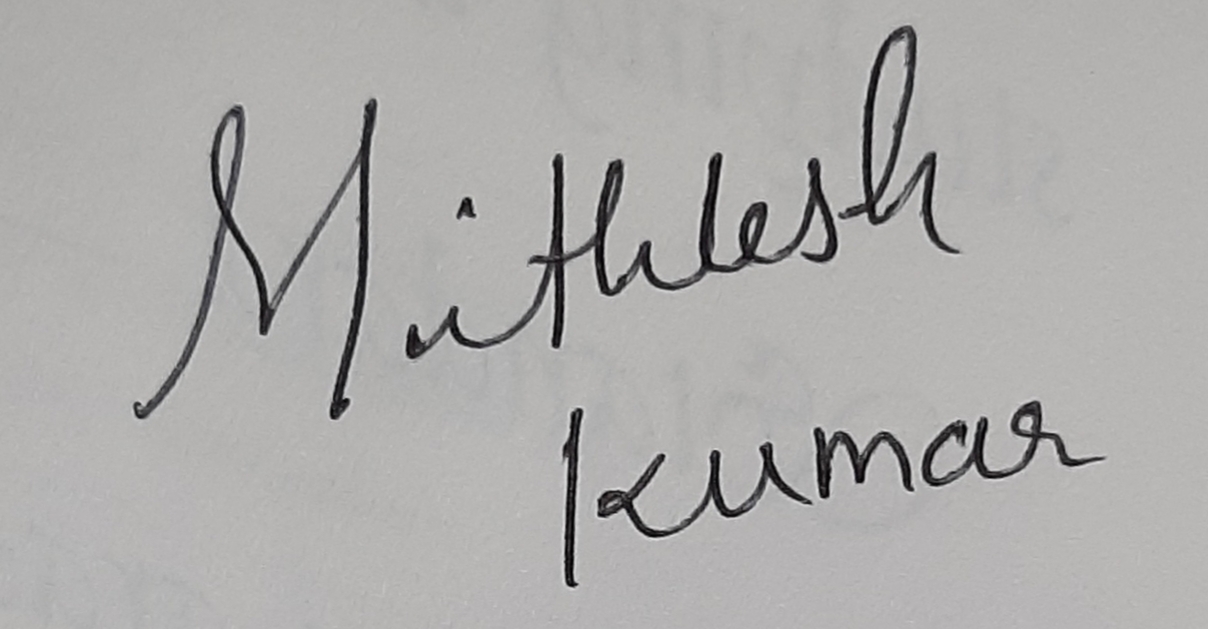 Mithlesh
Kumar